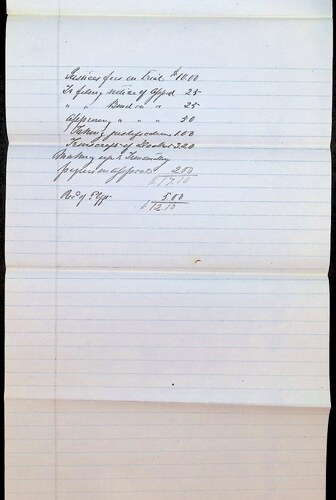 Justices fees on Trial $10.00
To filing notice of App'l 25
" " Bond on " 25
Approving " " " 50
Taking justification 1.00
Transcript of Docket 3.20
Making up & Transmitting
papers on appeal 2.00
$17.20
Rec'd of Plff 5.00
$12.20